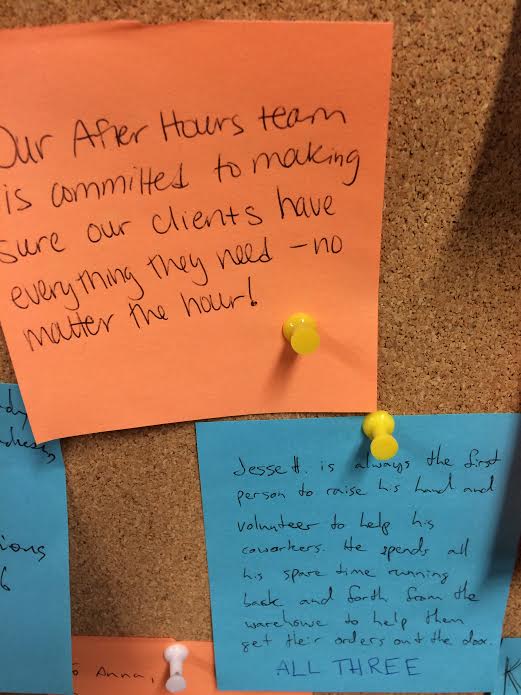 Our After Hours team
is committed to making
sure our clients have
everything they need – no
matter the hour!
Jesse H. is always the first
person to raise his hand and
volunteer to help his
coworkers. He spends all
his spare time running
back and forth from the
warehouse to help them
get their orders out the door.
ALL THREE
Anna,